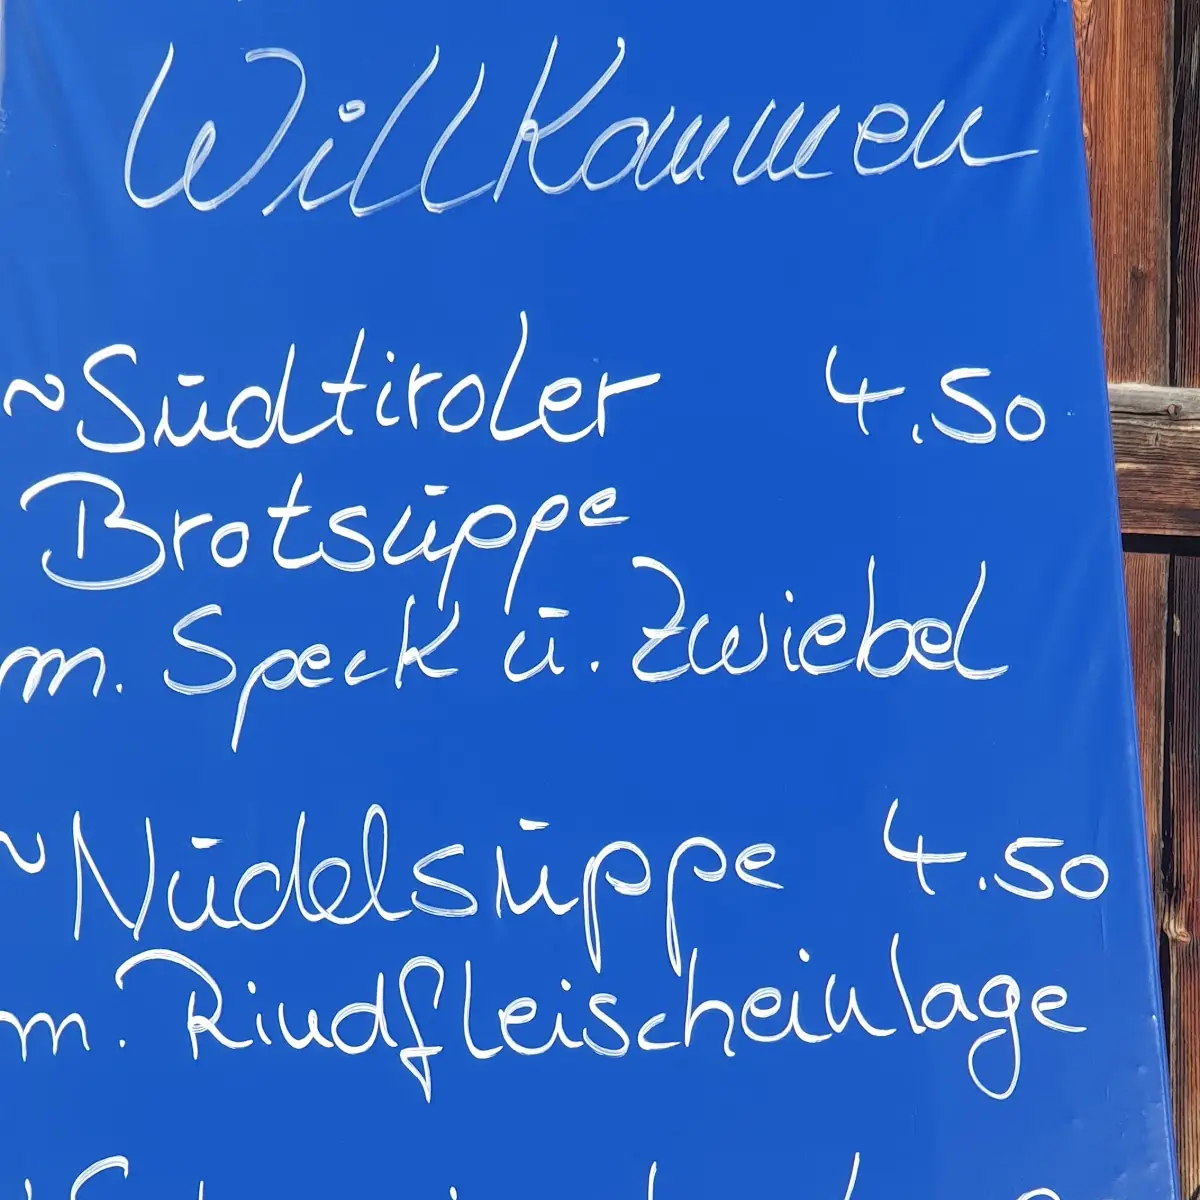 Willkommen
~Südtiroler 4.50
Brotsuppe
m. Speck u. Zwiebel
~Nudelsuppe 4.50
m. Rindfleischeinlage